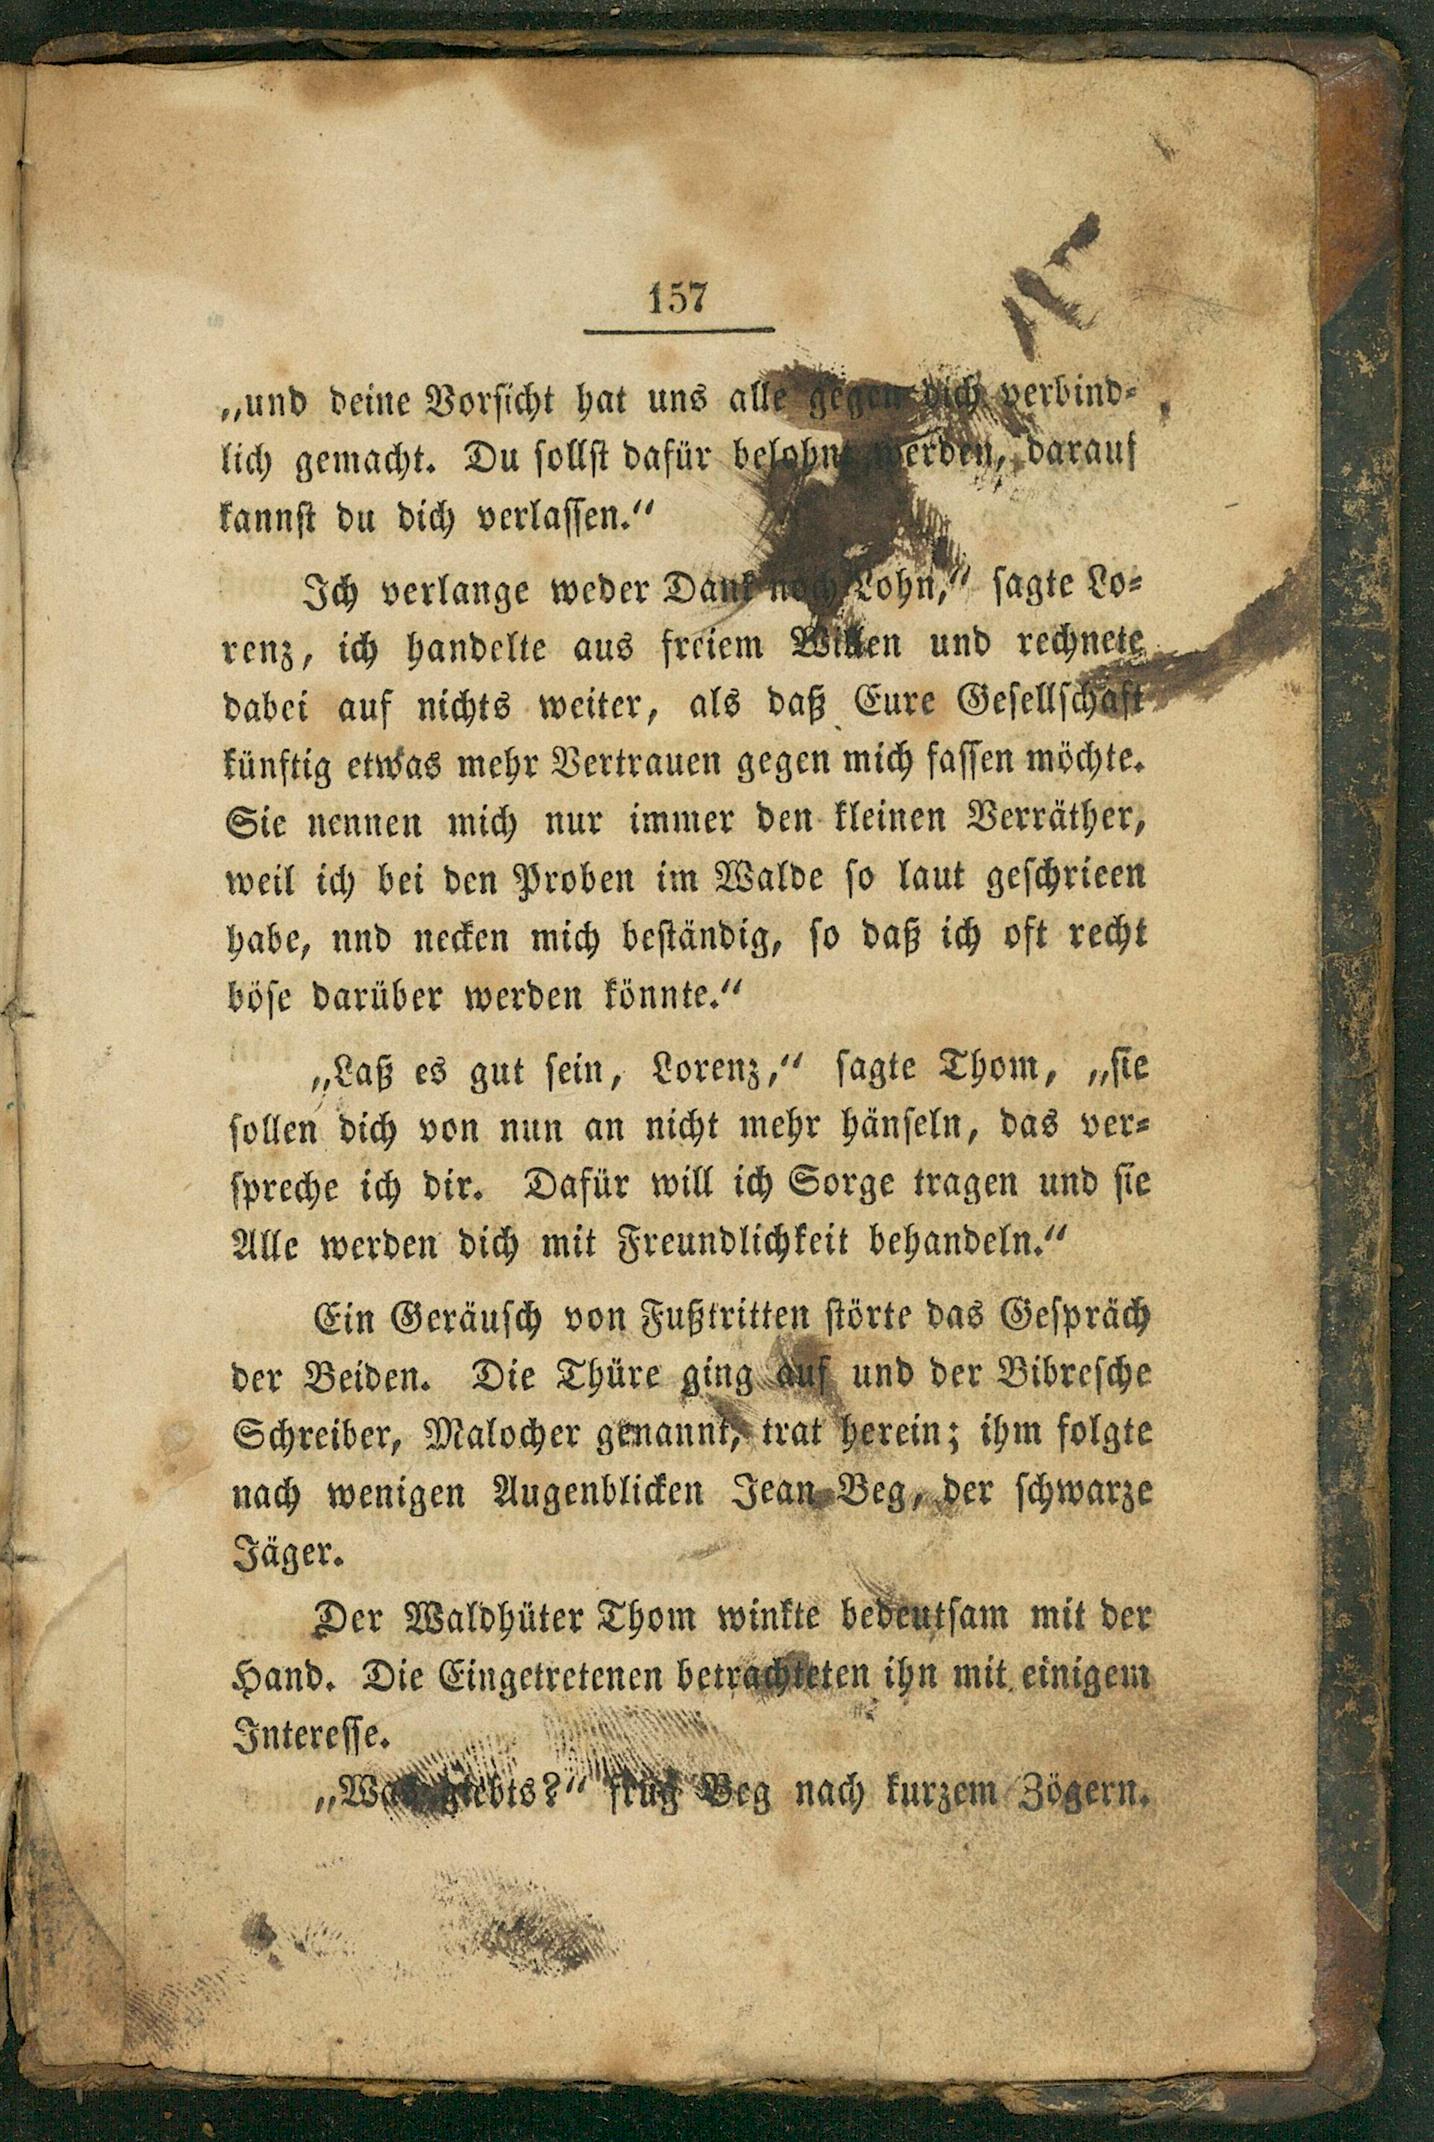 157
„und deine Vorsicht hat uns alle gegen dich verbind-
lich gemacht. Du sollst dafür belohnt werden, darauf
kannst du dich verlassen.“
Ich verlange weder Dank noch Lohn,“ sagte Lo-
renz, ich handelte aus freiem Willen und rechnete
dabei auf nichts weiter, als daß Eure Gesellschaft
künftig etwas mehr Vertrauen gegen mich fassen möchte.
Sie nennen mich nur immer den kleinen Verräther,
weil ich bei den Proben im Walde so laut geschrieen
habe, nnd necken mich beständig, so daß ich oft recht
böse darüber werden könnte.“
„Laß es gut sein, Lorenz,“ sagte Thom, „sie
sollen dich von nun an nicht mehr hänseln, das ver-
spreche ich dir. Dafür will ich Sorge tragen und sie
Alle werden dich mit Freundlichkeit behandeln.“
Ein Geräusch von Fußtritten störte das Gespräch
der Beiden. Die Thüre ging auf und der Bibresche
Schreiber, Malocher genannt, trat herein; ihm folgte
nach wenigen Augenblicken Jean Beg, der schwarze
Jäger.
Der Waldhüter Thom winkte bedeutsam mit der
Hand. Die Eingetretenen betrachteten ihn mit einigem
Interesse.
„Was giebts?“ frug Beg nach kurzem Zögern.